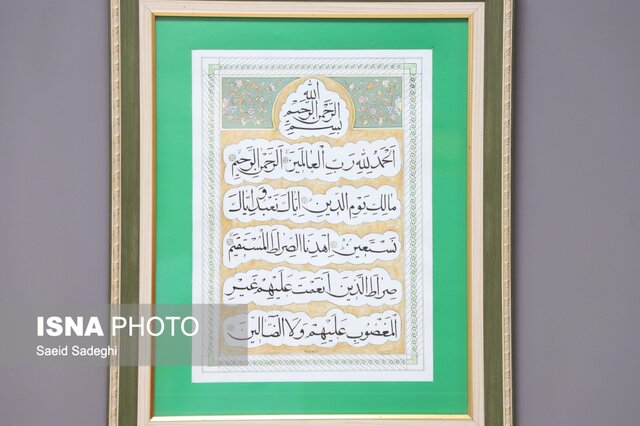 بسم الله الرحمن الرحيم
الحمد لله رب العالمين الرحمن الرحيم
مالك يوم الدين إياك نعبد وإياك
نستعين اهدنا الصراط المستقيم
صراط الذين أنعمت عليهم غير
المغضوب عليهم ولا الضالين
ISNA PHOTO
Saeid Sadeghi